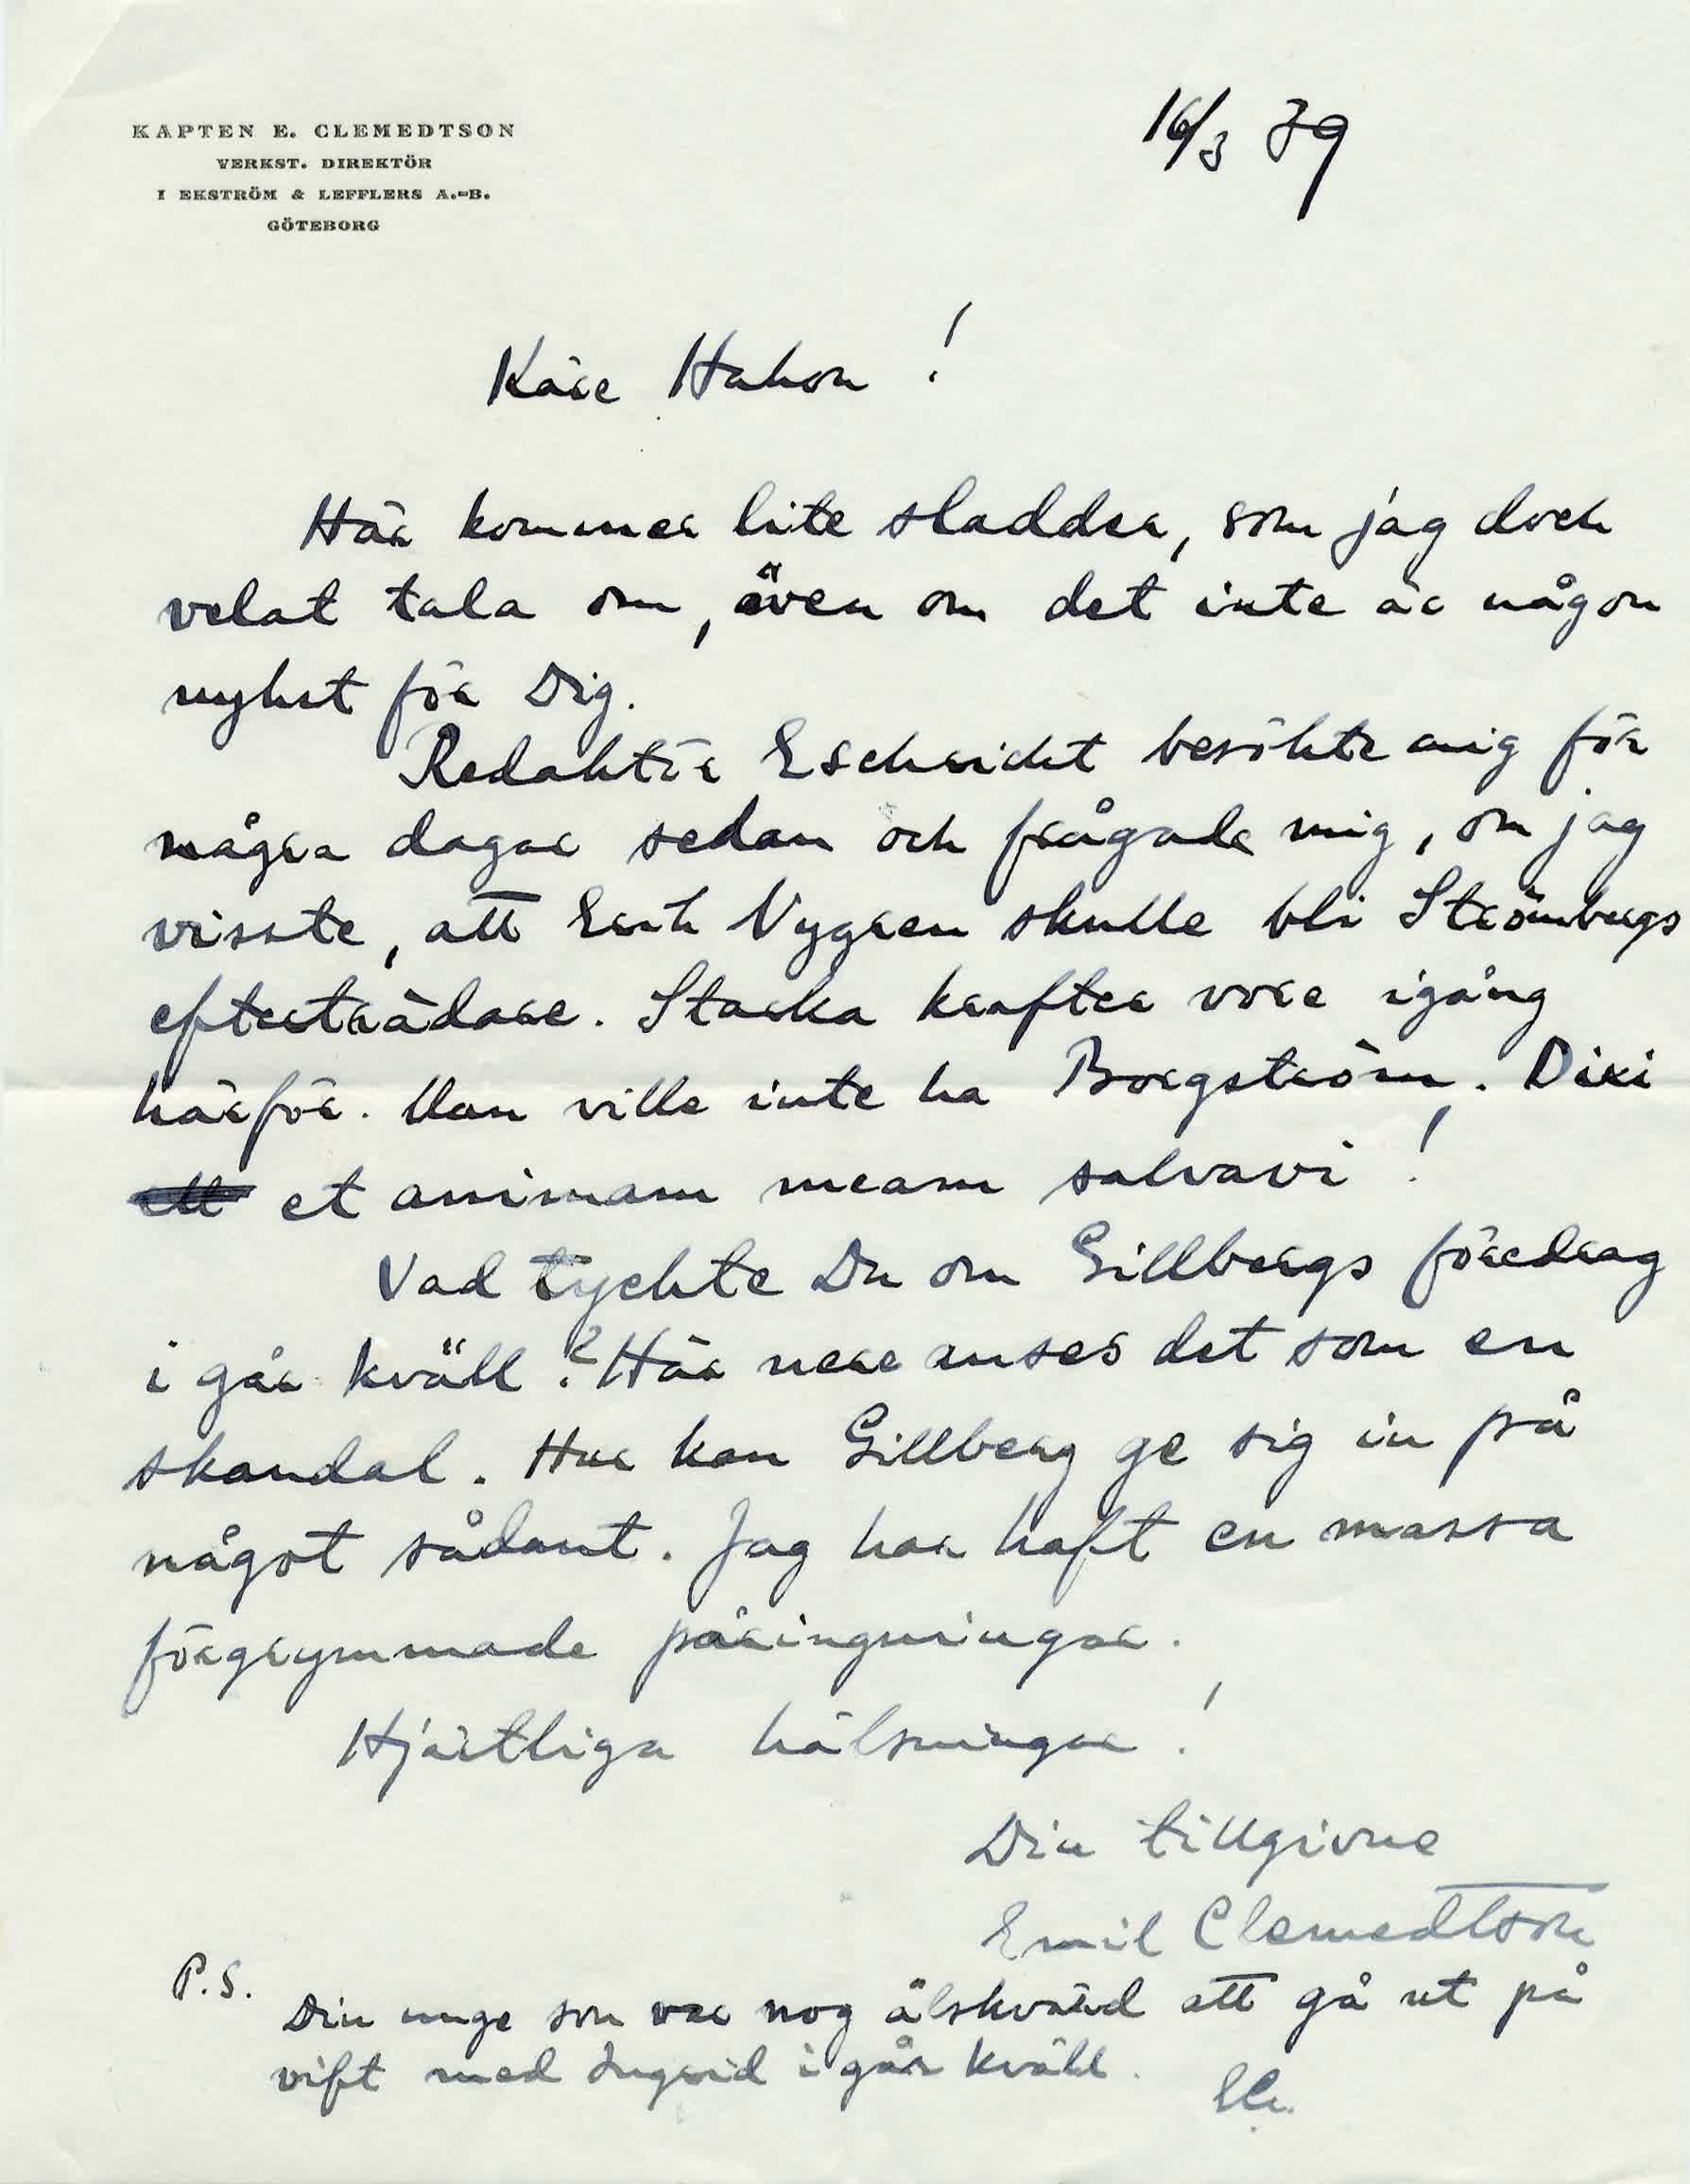 KAPTEN E. CLEMEDTSON
VERKST. DIREKTÖR
I EKSTRÖM & LEFFLERS A.-B.
GÖTEBORG
16/3 39
Käre Hakon!
Här kommer lite sladder, som jag dock
velat tala om, även om det inte är någon
nyhet för Dig.
Redaktör besökte mig för
några dagar sedan och frågade mig, om jag
visste, att Erik Nygren skulle bli Strömbergs
efterträdare. Starka krafter vore igång
härför. Man ville inte ha Borgström. Dixi
et animam meam salvavi!
Vad tyckte Du om Gillbergs föredrag
i går kväll? Här nere anses det som en
skandal. Hur kan Gillberg ge sig in på
något sådant. Jag har haft en massa
förgrymmade påringningar.
Hjärtliga hälsningar!
Din tillgivne
Emil Clemedtson
P.S.
Din unge son var nog älskvärd att gå ut på
vift med Ingrid i går kväll.
ECn.